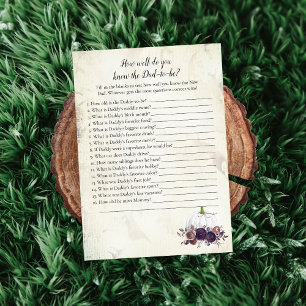 How well do you
know the Dad-to-be?
Fill in the blanks to see how well you know the New
Dad. Whoever gets the most questions correct wins!
1. How old is the Dad-to-be?
2. What is Daddy's middle name?
3. What is Daddy's birth month?
4. What is Daddy's favorite food?
5. What is Daddy's biggest craving?
6. What is Daddy's favorite drink?
7. What is Daddy's favorite movie?
8. If Daddy were a superhero, he would be?
9. What car does Daddy drive?
10. How many siblings does he have?
11. What is Daddy's favorite hobby?
12. What is Daddy's favorite color?
13. What was Daddy's first job?
14. What is Daddy's favorite sport?
15. What was Daddy's last vacation?
16. How did he meet Mommy?